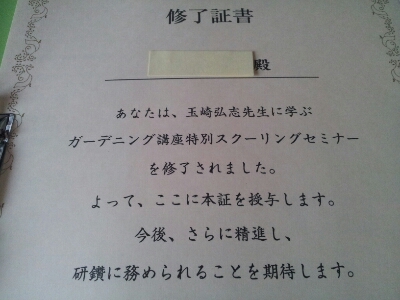 修了証書
殿
あなたは、玉崎弘志先生に学ぶ
ガーデニング講座特別スクーリングセミナー
を修了されました。
よって、ここに本証を授与します。
今後、さらに精進し、
研鑽に務められることを期待します。